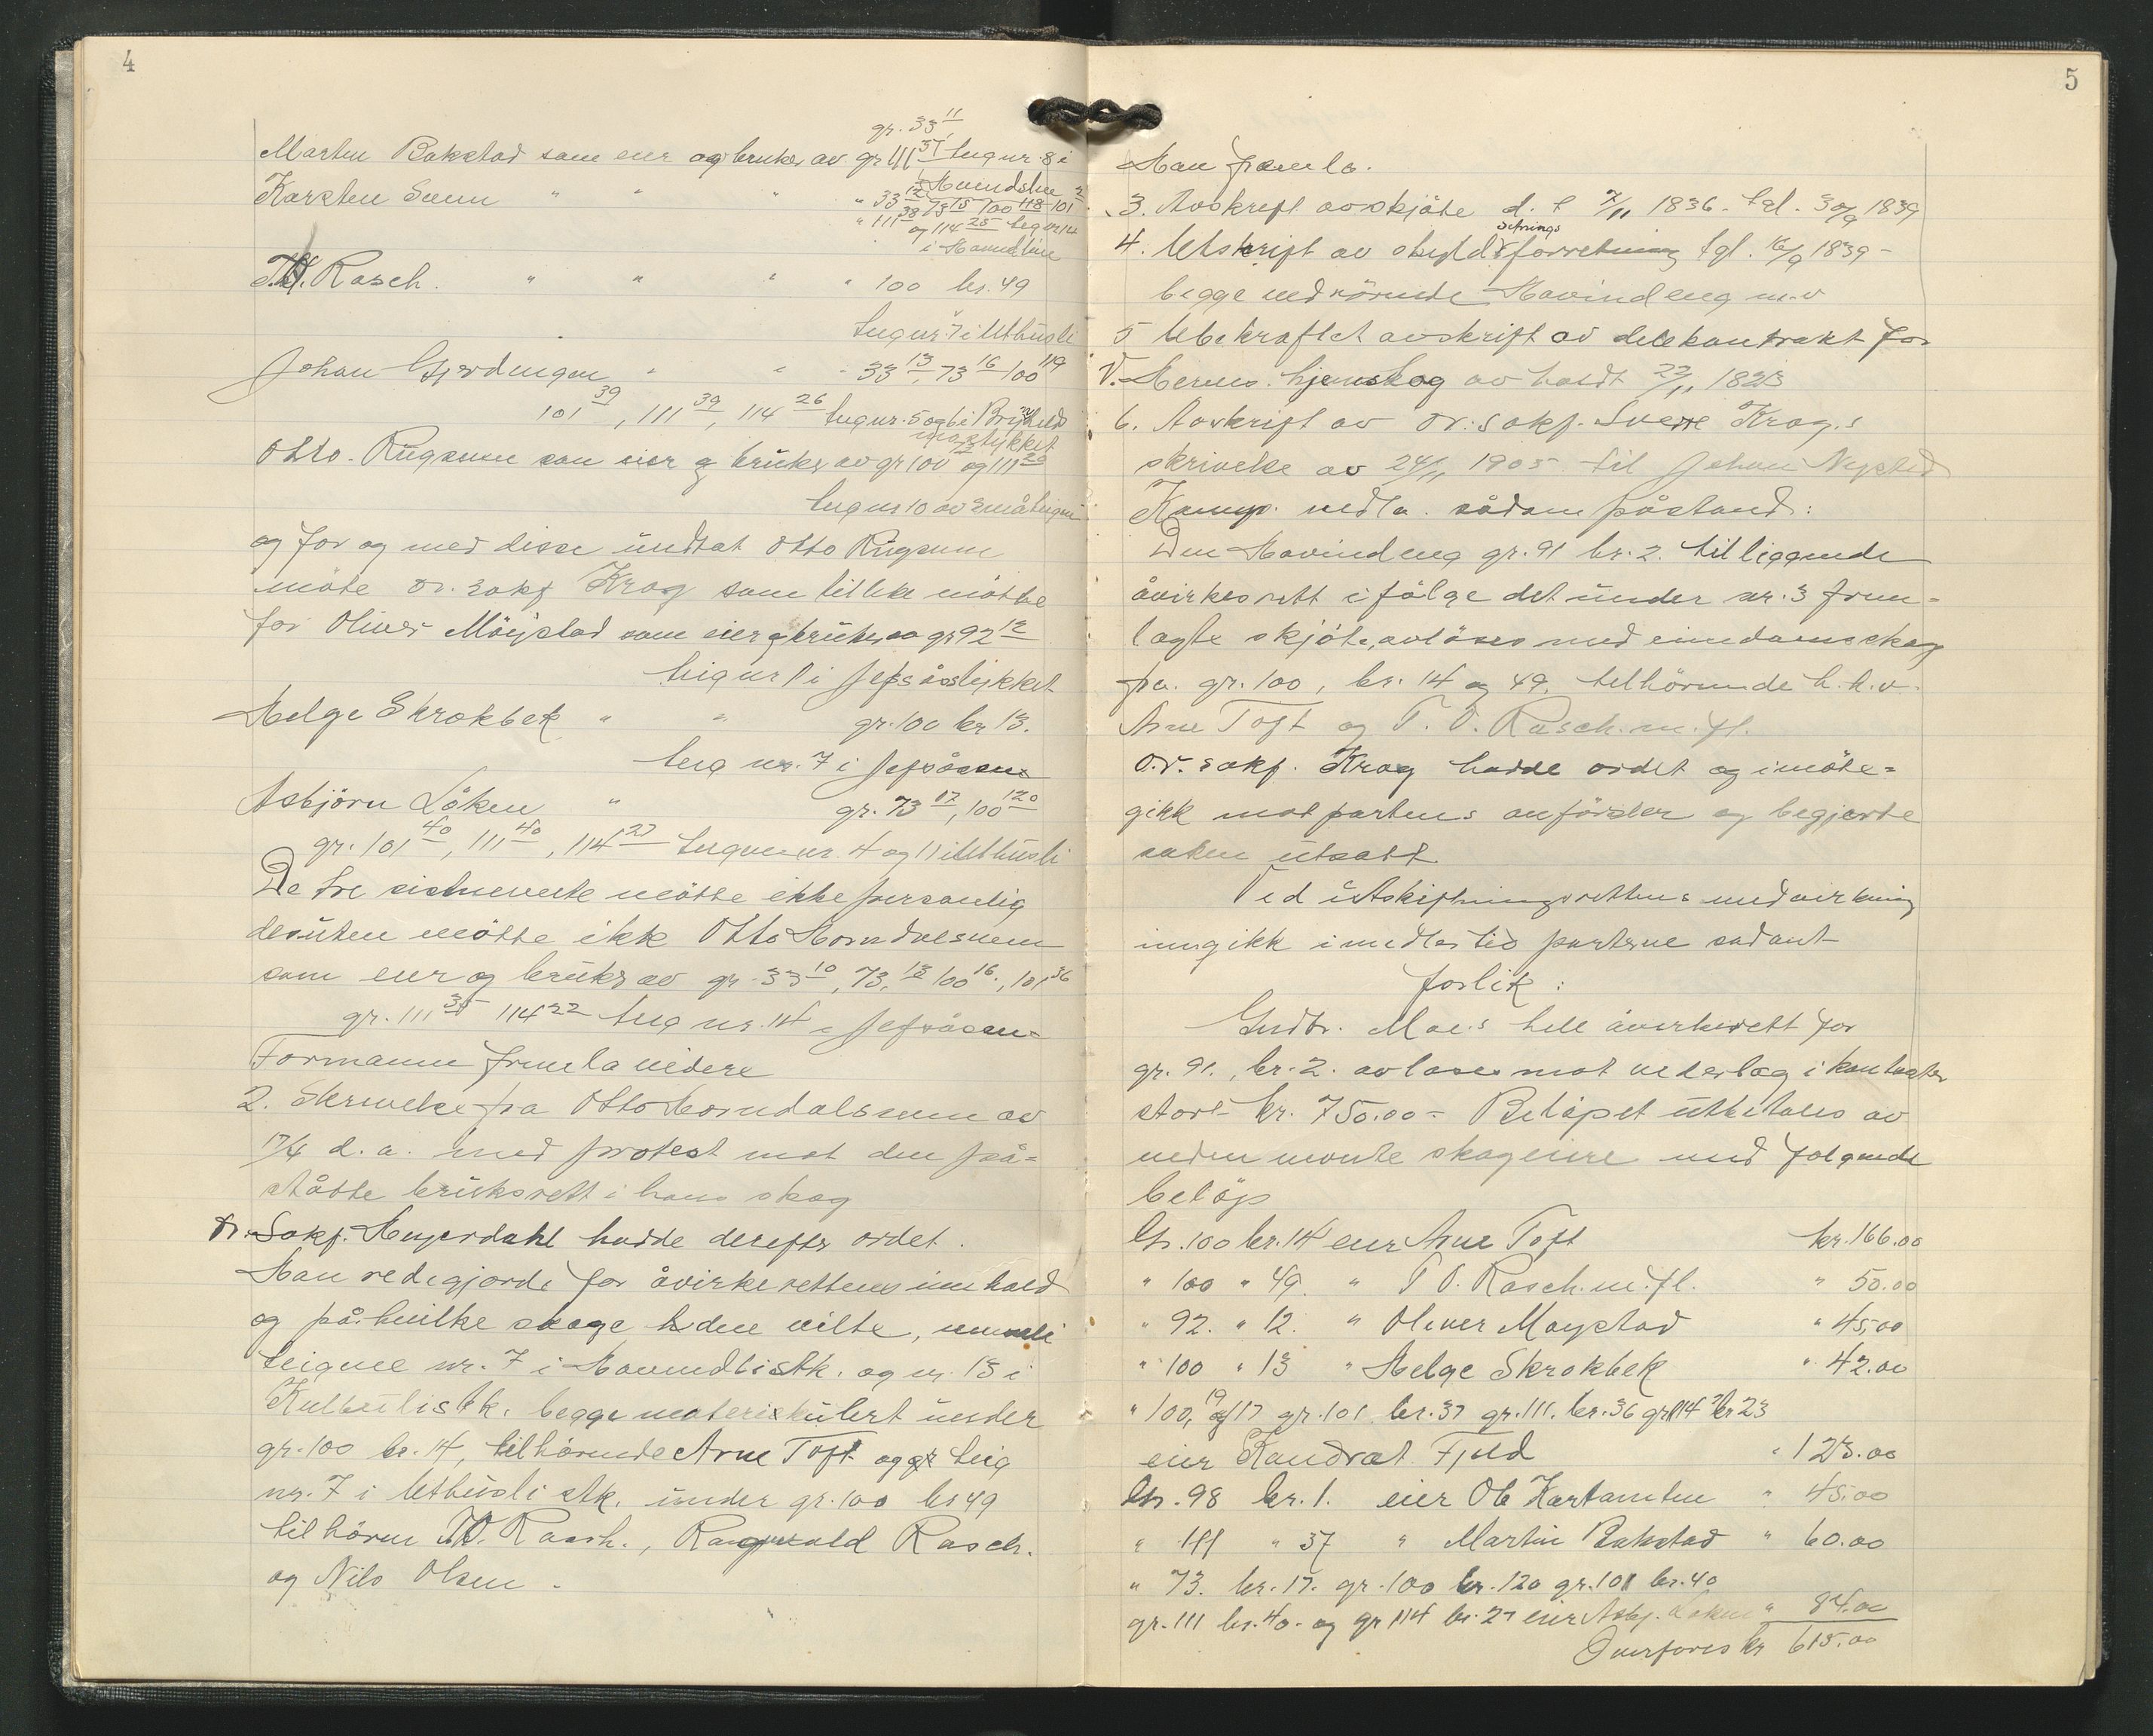 4
gr. 33 11
Martin Bakstad som eier og bruker av gr 111 37 teig nr. 8 i
Havindslien
Karsten Suen " " " " 33 12 73 15 100 118 101
" 111 38 og 114 25 teig nr 12
i Havindlien
T.O. Rasch. " " " " 100 br. 49
teig nr. 7 i Uthusli
Johan Gjerdingen " " " 33 13, 73 16 100 119
101 39, 111 39, 114 26 teig nr. 5 og 6 i
Otto Rugsveen som eier og bruker av gr 100 og 111 29
teig nr 10 av småteigene
og for og med disse undtat Otto Rugsveen
møte or. sakf Krog som tillike møtte
for Oliver Møystad som eier og bruker av gr 92 12
teig nr 1 i Jepsåsstykket
Helge Skrokbek " " gr. 100 br 13.
teig nr. 7 i Jepsåsen
Asbjørn Løken " gr. 73 17, 100 120
gr. 101 40, 111 40, 114 27 teigene nr. 4 og 11 i Uthusli
De tre sistnevnte møtte ikke personlig
desuten møtte ikk Otto Horndalsveen
som eier og bruker av gr. 33 10, 73, 13 100 16., 101 36
gr. 111 35 114 22 teig nr. 14 i Jepsåsen-
Formannen fremla videre
2. Skrivelse fra Otto Horndalsveen av
17/4 d.a. med protest mot den på-
ståtte bruksrett i hans skog
Or. Sakf. Heyerdahl hadde derefter ordet.
Han redegjorde for åvirkerettens innhold
og på hvilke skoge den vilte, nemli
teigene nr. 7 i Havindlistk. og nr. 13 i
Kulbulistk. begge materiskulert under
gr. 100 br. 14, tilhørende Arne Toft og teig
nr. 7 i Uthusli stk. under gr. 100 br 49
tilhøren T.O. Rasch., Ragnvald Rasch.
og Nils Olsen.
5
Han fremla.
3. Avskrift av skjøte d. t 7/11 1836. tgl. 30/9 1839
setnings
4. Utskrift av skyldsforretning tgl. 16/9 1839 -
begge vedrørende Havindeng m.v
5 Ubekræftet avskrift av delekontrakt for
V. Herens hjemskog av holdt 22/11 1823
6. Avskrift av or. sakf. Sverre Krog.s
skrivelse av 24/11 1905 til Johan Nysted
Komp. nedla sådam påstand:
Den Havindeng gr. 91 br. 2. tilliggende
åvirkesrett ifølge det under nr. 3 frem-
lagte skjøte, avløses med eiendomsskog
fra gr. 100, br. 14 og 49. tilhørende h.h.v.
Arne Toft og T. O. Rasch. m. fl.
O.r. sakf. Krog hadde ordet og imøte-
gikk motpartens anførsler og begjerte
saken utsatt
Ved utskiftningsrettens medvirkning
inngikk imidlertid partene sadant
forlik:
Gudbr. Moe.s hele åvirkerett for
gr. 91., br. 2. avløses mot vederlag i kontanter
stort kr. 750.00 - Beløpet utbetales av
nedennevnte skogeiere med følgende
beløp
Gr. 100 br. 14 eier Arne Toft kr. 166.00
" 100 " 49. " T O. Rasch. m. fl. " 50.00
" 92. " 12. " Oliver Møystad " 45,00
" 100 " 13 " Helge Skrokbek " 42.00
" 100, 19 og 17 gr. 101 br. 37 gr. 111. br. 36 gr 114 br 23
eier Kondrat Fjeld " 123.00
Gr. 98 br. 1. eier Ole " 45.00
" 111 " 37 " Martin Bakstad " 60.00
" 73. br. 17. gr. 100 br. 120 gr. 101 br. 40
gr. 111 br. 40. og gr 114 br. 27 eier Asbj. Løken " 84.00
Overføres kr 615.00